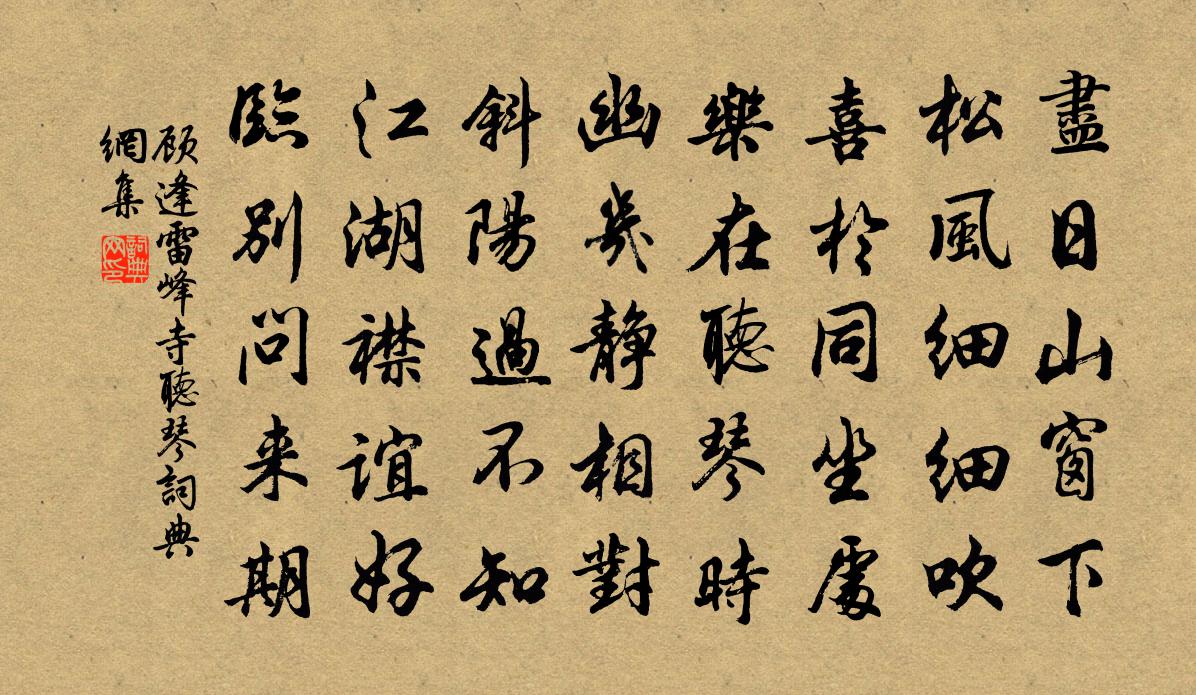 盡日山窗下
松風細細吹
喜於同坐處
樂在聽琴時
幽几靜相對
斜陽過不知
江湖襟誼好
臨別問来期
顾逢雷峰寺聽琴詞典
網集
詞典
网印